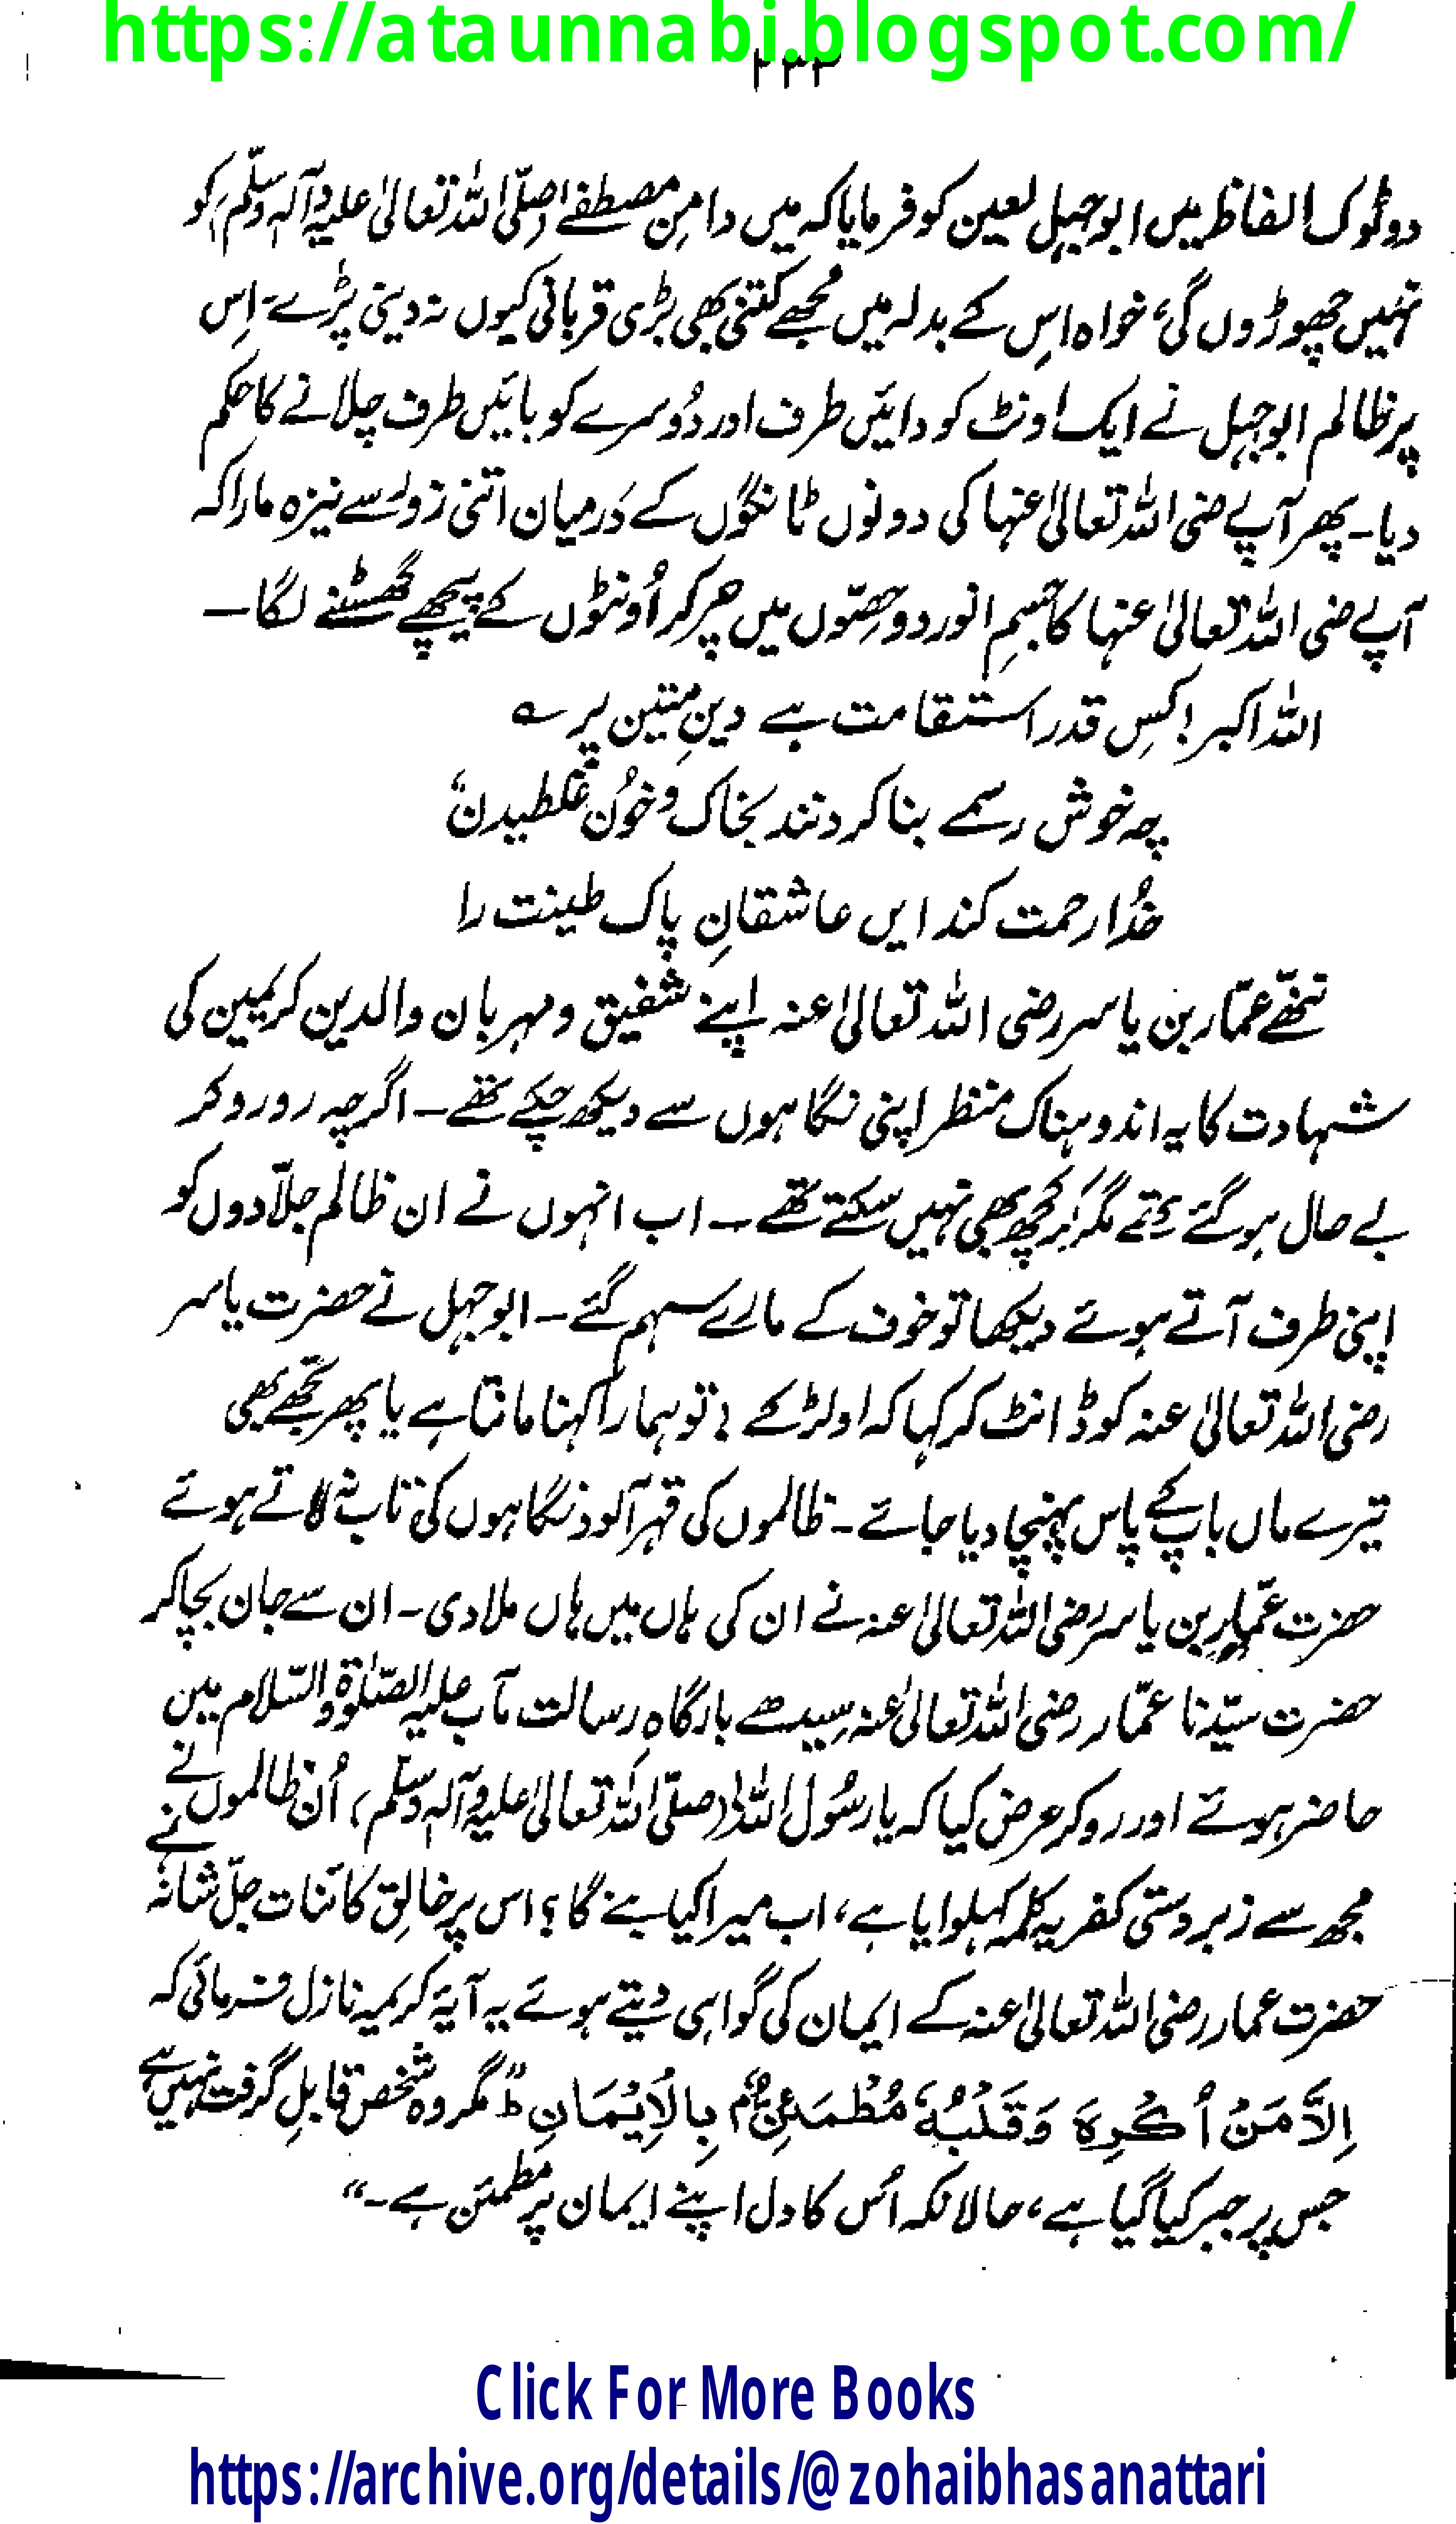 https://ataunnabi.blogspot.com/
۲۳۳
دوٹوک الفاظ میں ابوجہل لعین کو فرمایا کہ میں دامنِ مصطفےٰ (صلّی اللہ تعالیٰ علیہ وآلہٖ وسلّم) کو
نہیں چھوڑوں گی، خواہ اِس کے بدلہ میں مجھے کتنی بھی بڑی قربانی کیوں نہ دینی پڑے۔ اِس
پر ظالم ابوجہل نے ایک اونٹ کو دائیں طرف اور دُوسرے کو بائیں طرف چلانے کا حکم
دیا۔ پھر آپ رضی اللہ تعالیٰ عنہا کی دونوں ٹانگوں کے دَرمیان اتنی زور سے نیزہ مارا کہ
آپ رضی اللہ تعالیٰ عنہا کا جسمِ انور دو حصّوں میں چر کر اُونٹوں کے پیچھے گھسٹنے لگا۔
اللہ اکبر! کس قدر استقامت ہے دینِ متین پر ؎
چہ خوش رسمے بنا کردند بخاک و خوُن غلطیدن
خُدا رحمت کند ایں عاشقانِ پاک طینت را
ننھّے عمّار بن یاسر رضی اللہ تعالیٰ عنہ اپنے شفیق و مہربان والدین کریمین کی
شہادت کا یہ اندوہناک منظر اپنی نگاہوں سے دیکھ چکے تھے۔ اگرچہ رو رو کر
بے حال ہو گئے تھے مگر کر کچھ بھی نہیں سکتے تھے۔ اب انہوں نے ان ظالم جلّادوں کو
اپنی طرف آتے ہوئے دیکھا تو خوف کے مارے سہم گئے۔ ابوجہل نے حضرت یاسر
رضی اللہ تعالیٰ عنہ کو ڈانٹ کر کہا کہ او لڑکے! تو ہمارا کہنا مانتا ہے یا پھر تجھے بھی
تیرے ماں باپ کے پاس پہنچا دیا جائے۔ ظالموں کی قہر آلود نگاہوں کی تاب نہ لاتے ہوئے
حضرت عمّار بن یاسر رضی اللہ تعالیٰ عنہ نے ان کی ہاں میں ہاں ملا دی۔ ان سے جان بچا کر
حضرت سیّدنا عمّار رضی اللہ تعالیٰ عنہ سیدھے بارگاہِ رسالت مآب علیہ الصّلوٰۃ والسّلام میں
حاضر ہوئے اور رو کر عرض کیا کہ یا رسُول اللہ (صلّی اللہ تعالیٰ علیہ وآلہٖ وسلّم)، اُن ظالموں نے
مجھ سے زبردستی کفریہ کلمہ کہلوایا ہے، اب میرا کیا بنے گا؟ اس پر خالقِ کائنات جلّ شانہٗ نے
حضرت عمار رضی اللہ تعالیٰ عنہ کے ایمان کی گواہی دیتے ہوئے یہ آیۂ کریمہ نازل فرمائی کہ
اِلَّا مَنْ اُكْرِهَ وَقَلْبُهٗ مُطْمَئِنٌّۢ بِالْاِيْمَانِ ط "مگر وہ شخص قابلِ گرفت نہیں ہے
جس پر جبر کیا گیا ہے، حالانکہ اُس کا دل اپنے ایمان پر مطمئن ہے۔"
Click For More Books
https://archive.org/details/@zohaibhasanattari